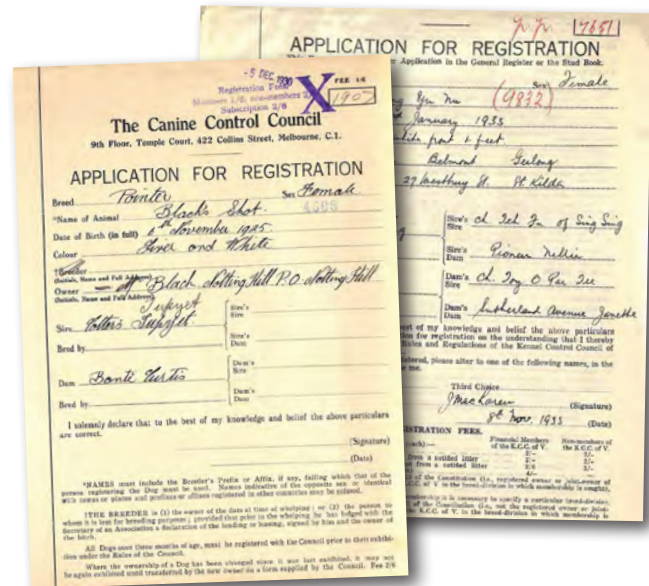 - 5 DEC 1930
Registration Fees
Members 1/6; non-members 2/
Subscription 2/6
X
FEE 1/6
1907
The Canine Control Council
9th Floor, Temple Court, 422 Collins Street, Melbourne, C.1.
APPLICATION FOR REGISTRATION
Breed Pointer Sex Female
*Name of Animal Black's Shot
4608
Date of Birth (in full) 6th November 1925
Colour Liver and White
†Breeder
(Initials, Name and Full Address)
Owner Black Notting Hill P.O. Notting Hill
(Initials, Name and Full Address)
Tupyet
Sire Potters Tupyet
Sire's Sire
Sire's Dam
Bred by
Dam Bonté Curtis
Dam's Sire
Dam's Dam
Bred by
I solemnly declare that to the best of my knowledge and belief the above particulars
are correct.
(Signature)
(Date)
*NAMES must include the Breeder's Prefix or Affix, if any, failing which that of the
person registering the Dog must be used. Names indicative of the opposite sex or identical
with towns or places and prefixes or affixes registered in other countries may be refused.
†THE BREEDER is (1) the owner of the dam at time of whelping; or (2) the person to
whom it is lent for breeding purposes; provided that prior to the whelping he has lodged with the
Secretary of an Association a declaration of the lending or leasing, signed by him and the owner of
the bitch.
All Dogs over three months of age, must be registered with the Council prior to their exhibi-
tion under the Rules of the Council.
Where the ownership of a Dog has been changed since it was last exhibited, it may not
be again exhibited until transferred by the new owner on a form supplied by the Council. Fee 2/6
7651
APPLICATION FOR REGISTRATION
Application in the General Register or the Stud Book.
Sex Female
Yu Nu (9832)
January 1933
white front & feet
Belmont Geelong
27 Westbury St. St. Kilda
Sire's Sire Ch. Tch Fu of Sing Sing
Sire's Dam Pioneer Nellie
Dam's Sire Ch. Toy O Par Tee
Dam's Dam Sutherland Avenue Janette
best of my knowledge and belief the above particulars
tion for registration on the understanding that I thereby
Rules and Regulations of the Kennel Control Council of
stered, please alter to one of the following names, in the
me.
Third Choice
J MacLaren (Signature)
8th Nov. 1933 (Date)
STRATION FEES.
Financial Members of the K.C.C. of V.
Non-members of the K.C.C. of V.
from a notified litter
not from a notified litter
of the Constitution (i.e., registered owner or joint-owner of
of V. in the breed-division in which membership is sought).
membership it is necessary to specify a particular breed-division
of the Constitution (i.e., not the registered owner or joint-
K.C.C. of V. in the breed-division in which membership is